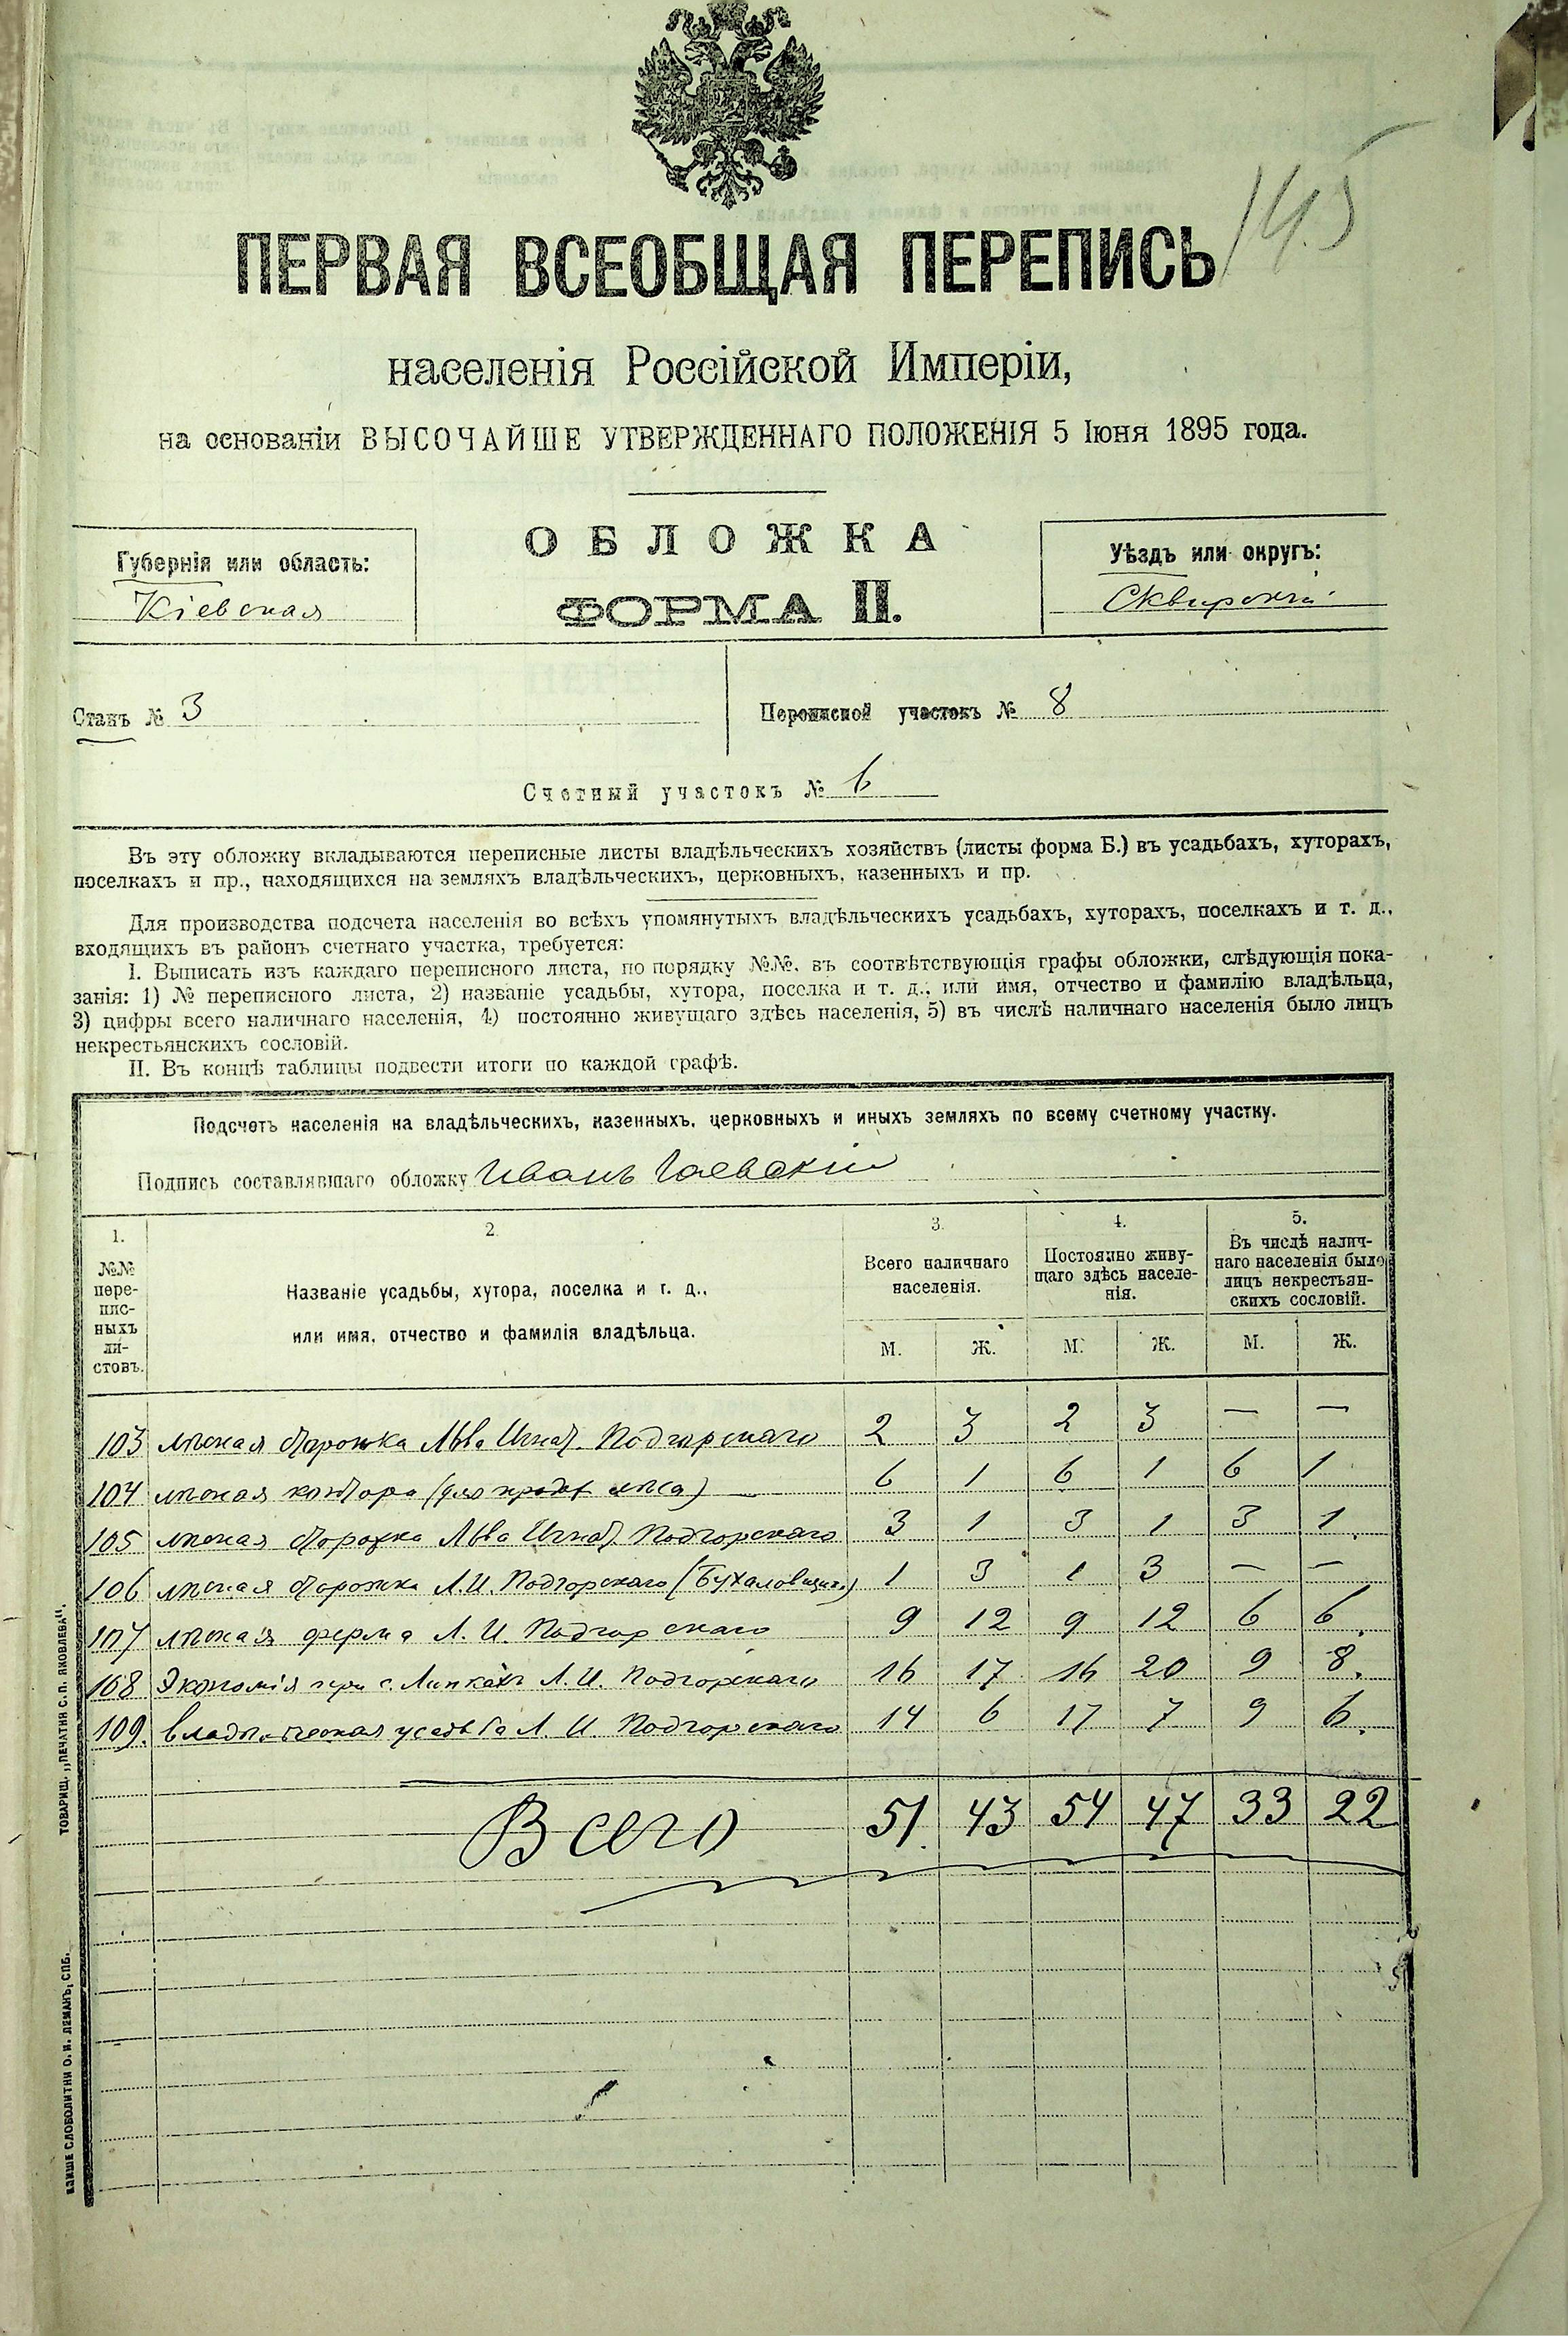 145
ПЕРВАЯ ВСЕОБЩАЯ ПЕРЕПИСЬ
населенія Россійской Имперіи,
на основаніи ВЫСОЧАЙШЕ УТВЕРЖДЕННАГО ПОЛОЖЕНІЯ 5 Іюня 1895 года.
ОБЛОЖКА
ФОРМА II.
Губернія или область:
Кіевская
Уѣздъ или округъ:
Сквирскій
Станъ № 3
Переписной участокъ № 8
Счетный участокъ № 6
Въ эту обложку вкладываются переписные листы владѣльческихъ хозяйствъ (листы форма Б.) въ усадьбахъ, хуторахъ,
поселкахъ и пр., находящихся на земляхъ владѣльческихъ, церковныхъ, казенныхъ и пр.
Для производства подсчета населенія во всѣхъ упомянутыхъ владѣльческихъ усадьбахъ, хуторахъ, поселкахъ и т. д.,
входящихъ въ районъ счетнаго участка, требуется:
I. Выписать изъ каждаго переписного листа, по порядку №№, въ соотвѣтствующія графы обложки, слѣдующія пока-
занія: 1) № переписного листа, 2) названіе усадьбы, хутора, поселка и т. д., или имя, отчество и фамилію владѣльца,
3) цифры всего наличнаго населенія, 4) постоянно живущаго здѣсь населенія, 5) въ числѣ наличнаго населенія было лицъ
некрестьянскихъ сословій.
II. Въ концѣ таблицы подвести итоги по каждой графѣ.
Подсчетъ населенія на владѣльческихъ, казенныхъ, церковныхъ и иныхъ земляхъ по всему счетному участку.
Подпись составлявшаго обложку Иванъ Гаевскій
1.
№№ пере-
пис-
ныхъ
ли-
стовъ.
2
Названіе усадьбы, хутора, поселка и т. д.,
или имя, отчество и фамилія владѣльца.
3.
Всего наличнаго
населенія.
4.
Постоянно живу-
щаго здѣсь населе-
нія.
5.
Въ числѣ налич-
наго населенія было
лицъ некрестьян-
скихъ сословій.
М. Ж. М. Ж. М. Ж.
103 лѣсная сторожка Льва Игнат. Подгорскаго 2 3 2 3 — —
104 лѣсная контора (для продаж лѣса) — 6 1 6 1 6 1
105 лѣсная сторожка Льва Игнат. Подгорскаго 3 1 3 1 3 1.
106 лѣсная сторожка Л. И. Подгорскаго 1 3 1 3 — —
107 лѣсная ферма Л. И. Подгорскаго 9 12 9 12 6 6.
108 Экономія при с. Липкахъ Л. И. Подгорскаго 16 17 16 20 9 8.
109. владѣльческая усадьба Л. И. Подгорскаго 14 6 17 7 9 6.
Всего 51. 43 54 47 33 22
ТОВАРИЩ. „ПЕЧАТНИ С. П. ЯКОВЛЕВА“.
СЛОВОЛИТНИ О. И. ЛЕМАНЪ, СПБ.